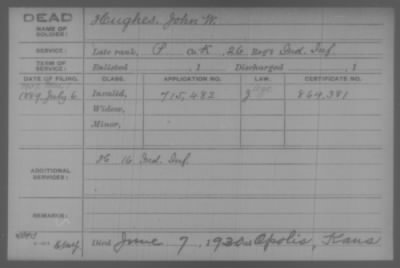 DEAD
NAME OF SOLDIER:
Hughes, John W.
SERVICE:
Late rank, P Co. K, 26 Reg't Ind. Inf.
TERM OF SERVICE:
Enlisted , 1 Discharged , 1
DATE OF FILING. CLASS. APPLICATION NO. LAW. CERTIFICATE NO.
1889 July 6 Invalid, 715,482 864,381
Widow,
Minor,
ADDITIONAL SERVICES:
K 16 Ind. Inf.
REMARKS:
Died June 7, 192 at Opolis, Kans